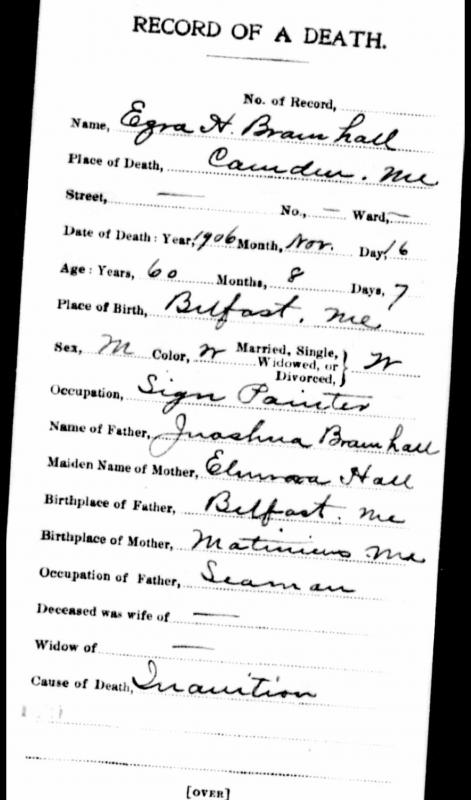 RECORD OF A DEATH.
No. of Record,
Name, Ezra H. Bramhall
Place of Death, Camden. Me
Street, — No., — Ward, —
Date of Death: Year, 1906 Month, Nov. Day, 16
Age: Years, 60 Months, 8 Days, 7
Place of Birth, Belfast. Me
Sex, M Color, W Married, Single, Widowed, or Divorced, } W
Occupation, Sign Painter
Name of Father, Bramhall
Maiden Name of Mother, Hall
Birthplace of Father, Belfast. Me
Birthplace of Mother, Matinicus Me
Occupation of Father, Seaman
Deceased was wife of —
Widow of —
Cause of Death, Inanition
[OVER]